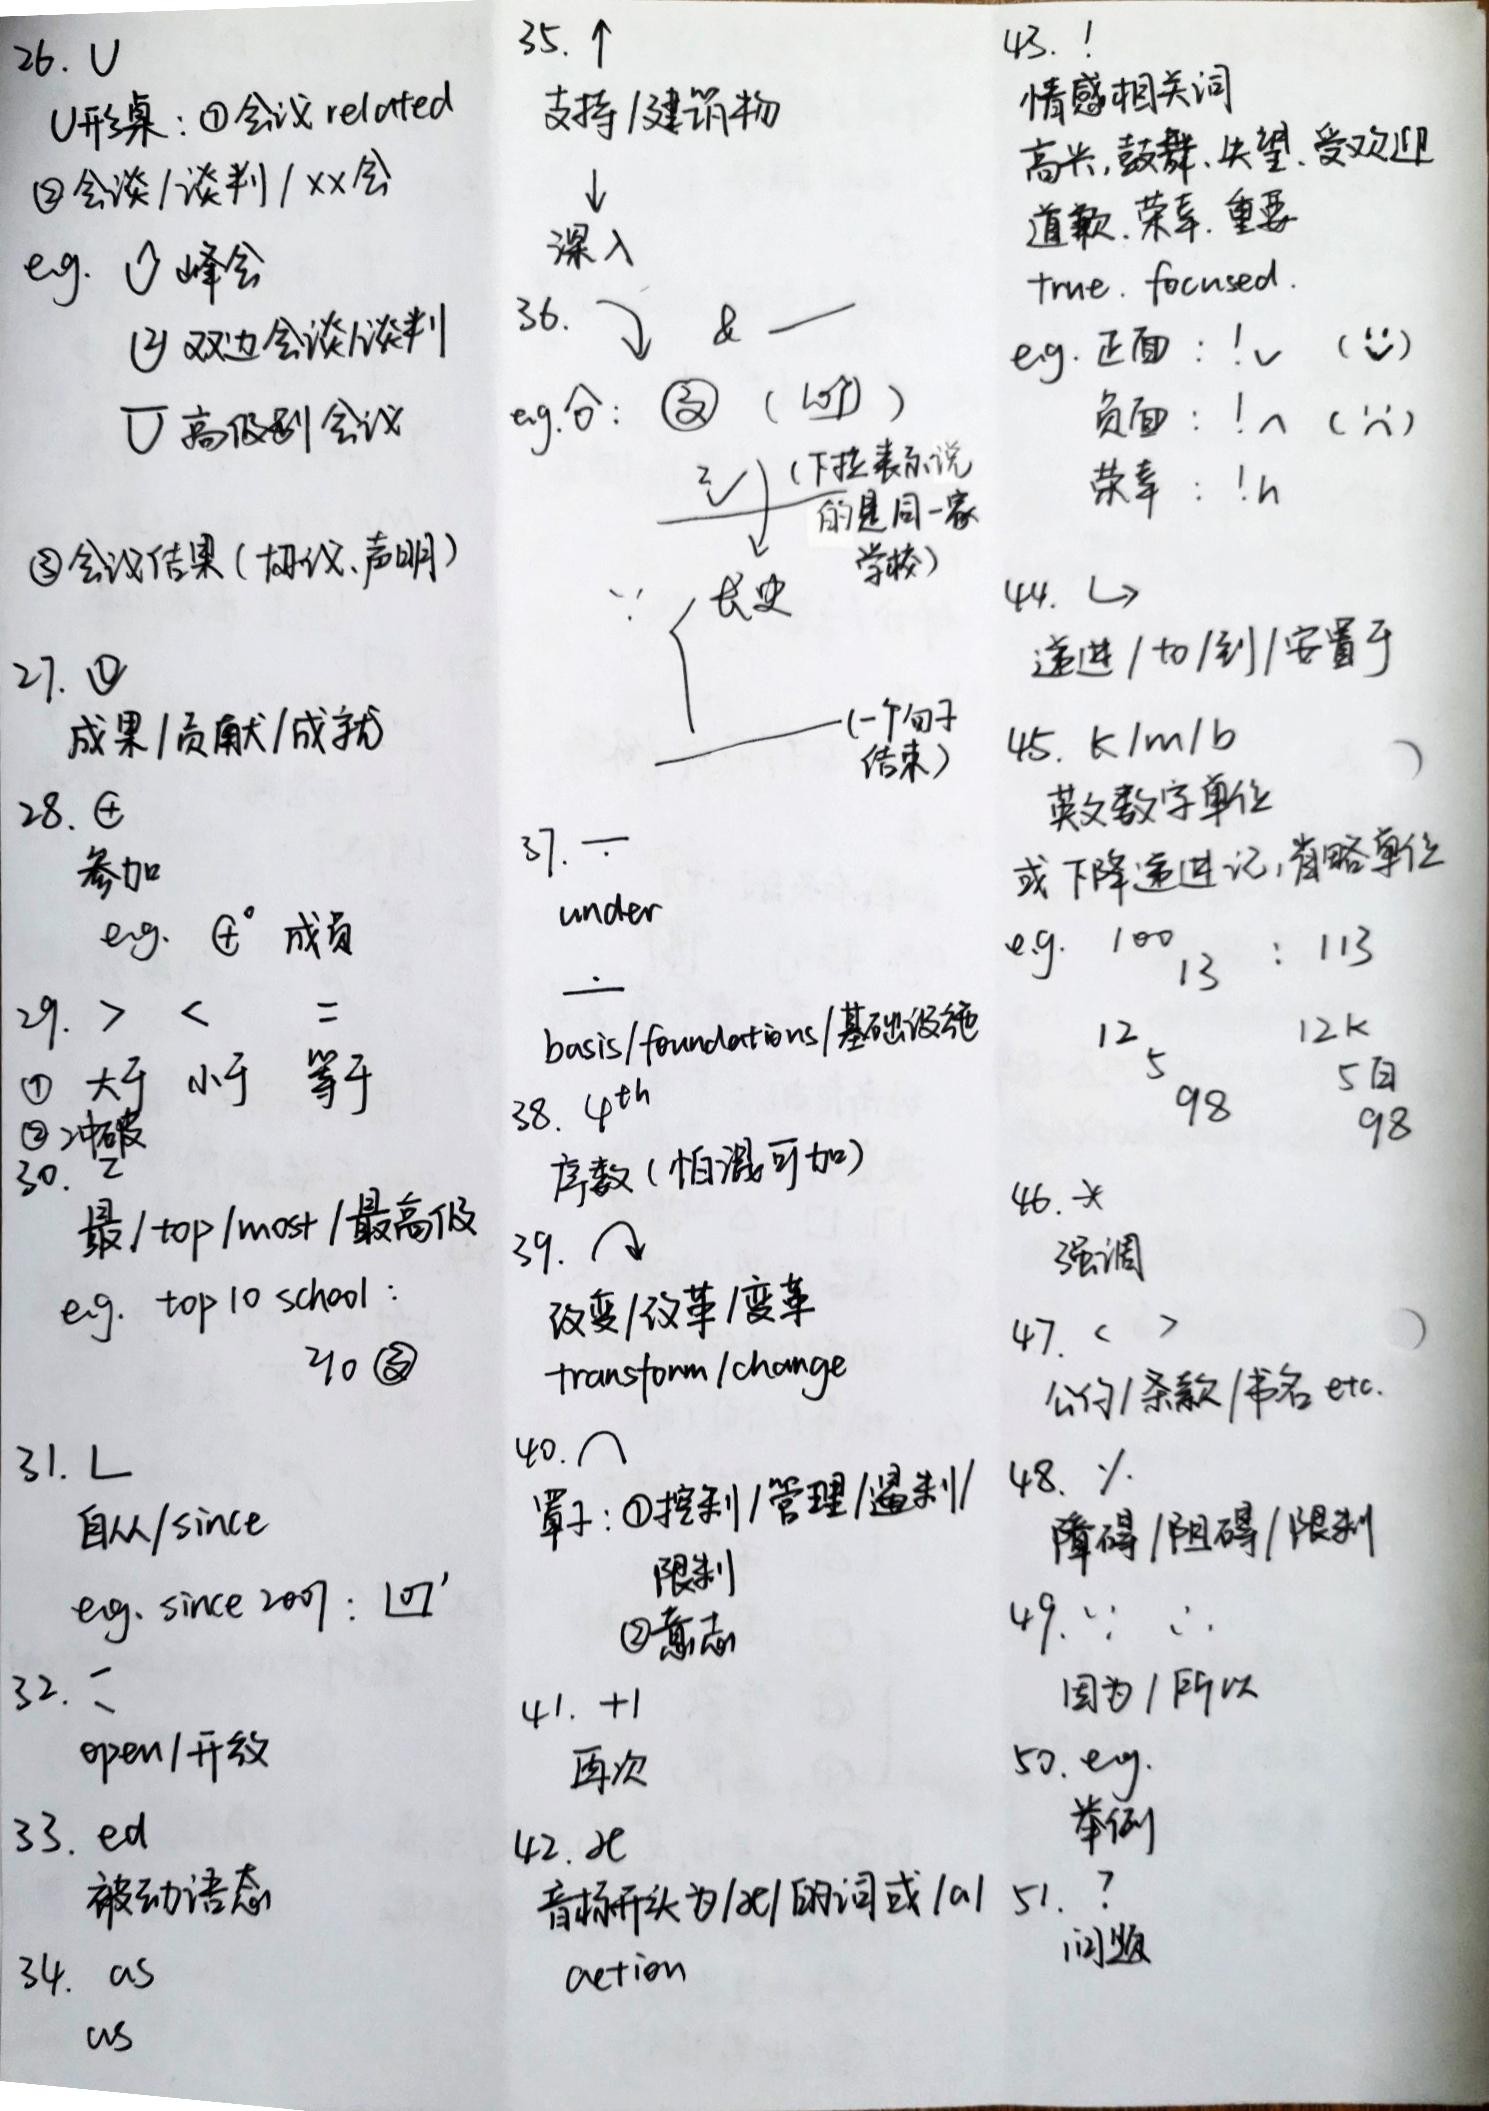 26. U
U形桌: ①会议 related
②会谈/谈判/xx会
e.g. 峰会
双边会谈/谈判
高级别会议
③会议结果(协议、声明)
27.
成果/贡献/成就
28. ⊕
参加
e.g. ⊕° 成员
29. > < =
① 大于 小于 等于
②冲破
30.
最/top/most/最高级
e.g. top 10 school:
31. L
自从/since
e.g. since 2007: L07'
32.
open/开放
33. ed
被动语态
34. as
as
35. ↑
支持/建筑物
↓
深入
36. &
e.g.
(下拉表示说
的是同一家
学校)
∵
长史
(一个句子
结束)
37.
under
basis/foundations/基础设施
38. 4th
序数(怕混可加)
39.
改变/改革/变革
transform/change
40. ⌒
罩子: ①控制/管理/遏制/
限制
②意志
41. +1
再次
42. æ
音标开头为/æ/的词或/a/
action
43. !
情感相关词
高兴,鼓舞、失望、受欢迎
道歉、荣幸、重要
true. focused.
e.g. 正面: !
负面: !
荣幸: !h
44. ↳
递进/to/到/安置于
45. k/m/b
英文数字单位
或下降递进记,省略单位
e.g. 100
13 : 113
12 12k
5 5百
98 98
46. *
强调
47. < >
公约/条款/书名 etc.
48.
障碍/阻碍/限制
49. ∵ ∴
因为/所以
50. e.g.
举例
51. ?
问题